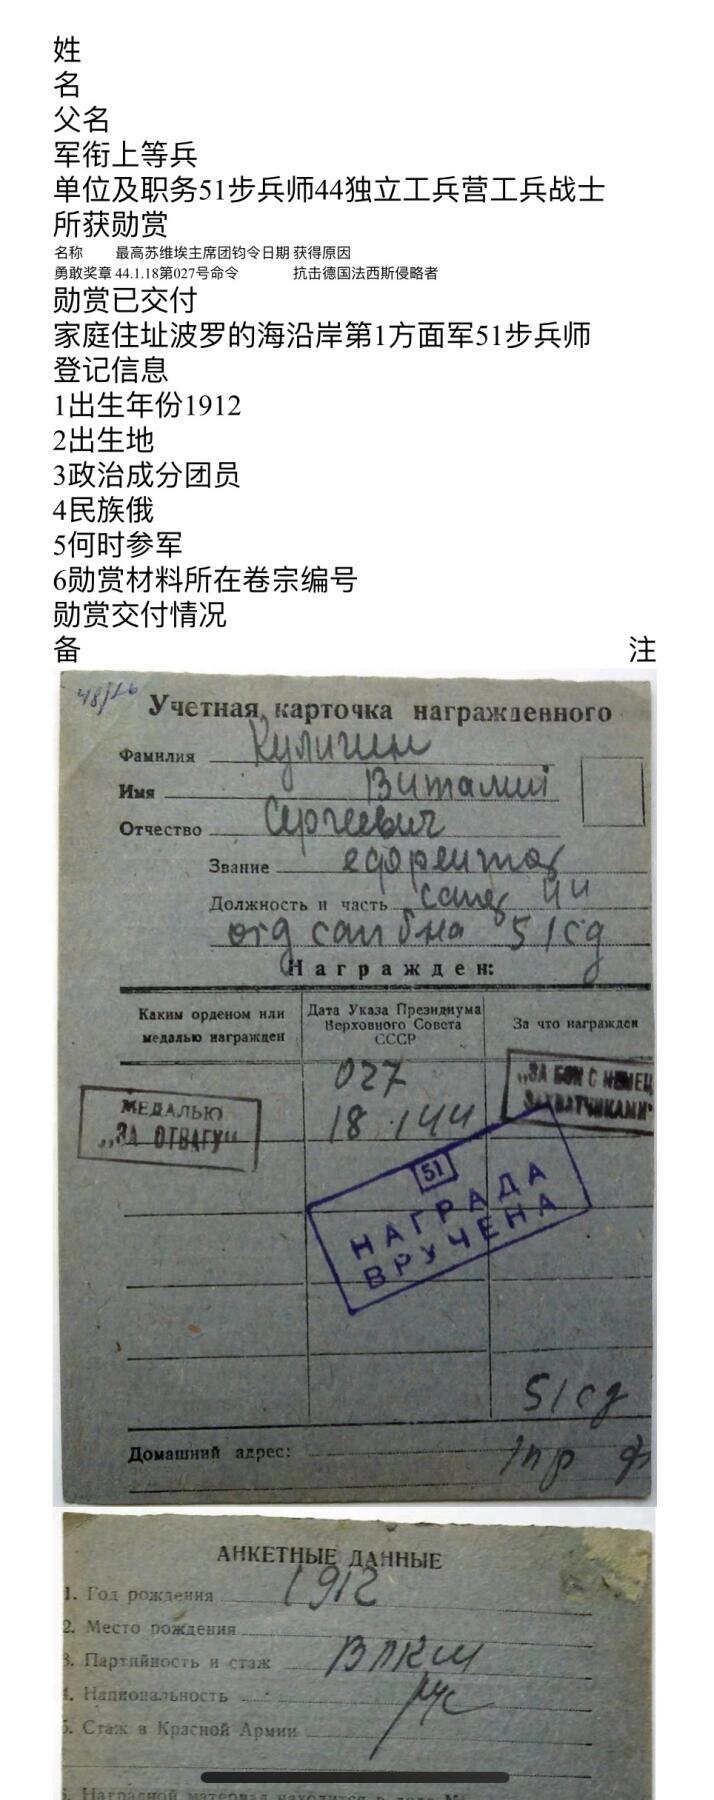 姓
名
父名
军衔上等兵
单位及职务51步兵师44独立工兵营工兵战士
所获勋赏
名称 最高苏维埃主席团钧令日期 获得原因
勇敢奖章 44.1.18第027号命令 抗击德国法西斯侵略者
勋赏已交付
家庭住址波罗的海沿岸第1方面军51步兵师
登记信息
1出生年份1912
2出生地
3政治成分团员
4民族俄
5何时参军
6勋赏材料所在卷宗编号
勋赏交付情况
备 注
48/26
Учетная карточка награжденного
Фамилия Кулигин
Имя Виталий
Отчество Сергеевич
Звание ефрейтор
Должность и часть сапер 44
отд сап б-на 51сд
Награжден:
Каким орденом или медалью награжден
Дата Указа Президиума Верховного Совета СССР
За что награжден
027
18.1.44
МЕДАЛЬЮ
„ЗА ОТВАГУ“
„ЗА БОИ С НЕМЕЦ
ЗАХВАТЧИКАМИ“
51
НАГРАДА
ВРУЧЕНА
51сд
Домашний адрес: 1 пр ф
АНКЕТНЫЕ ДАННЫЕ
1. Год рождения 1912
2. Место рождения
3. Партийность и стаж ВЛКСМ
4. Национальность рус
5. Стаж в Красной Армии
6. Наградной материал находится в деле №